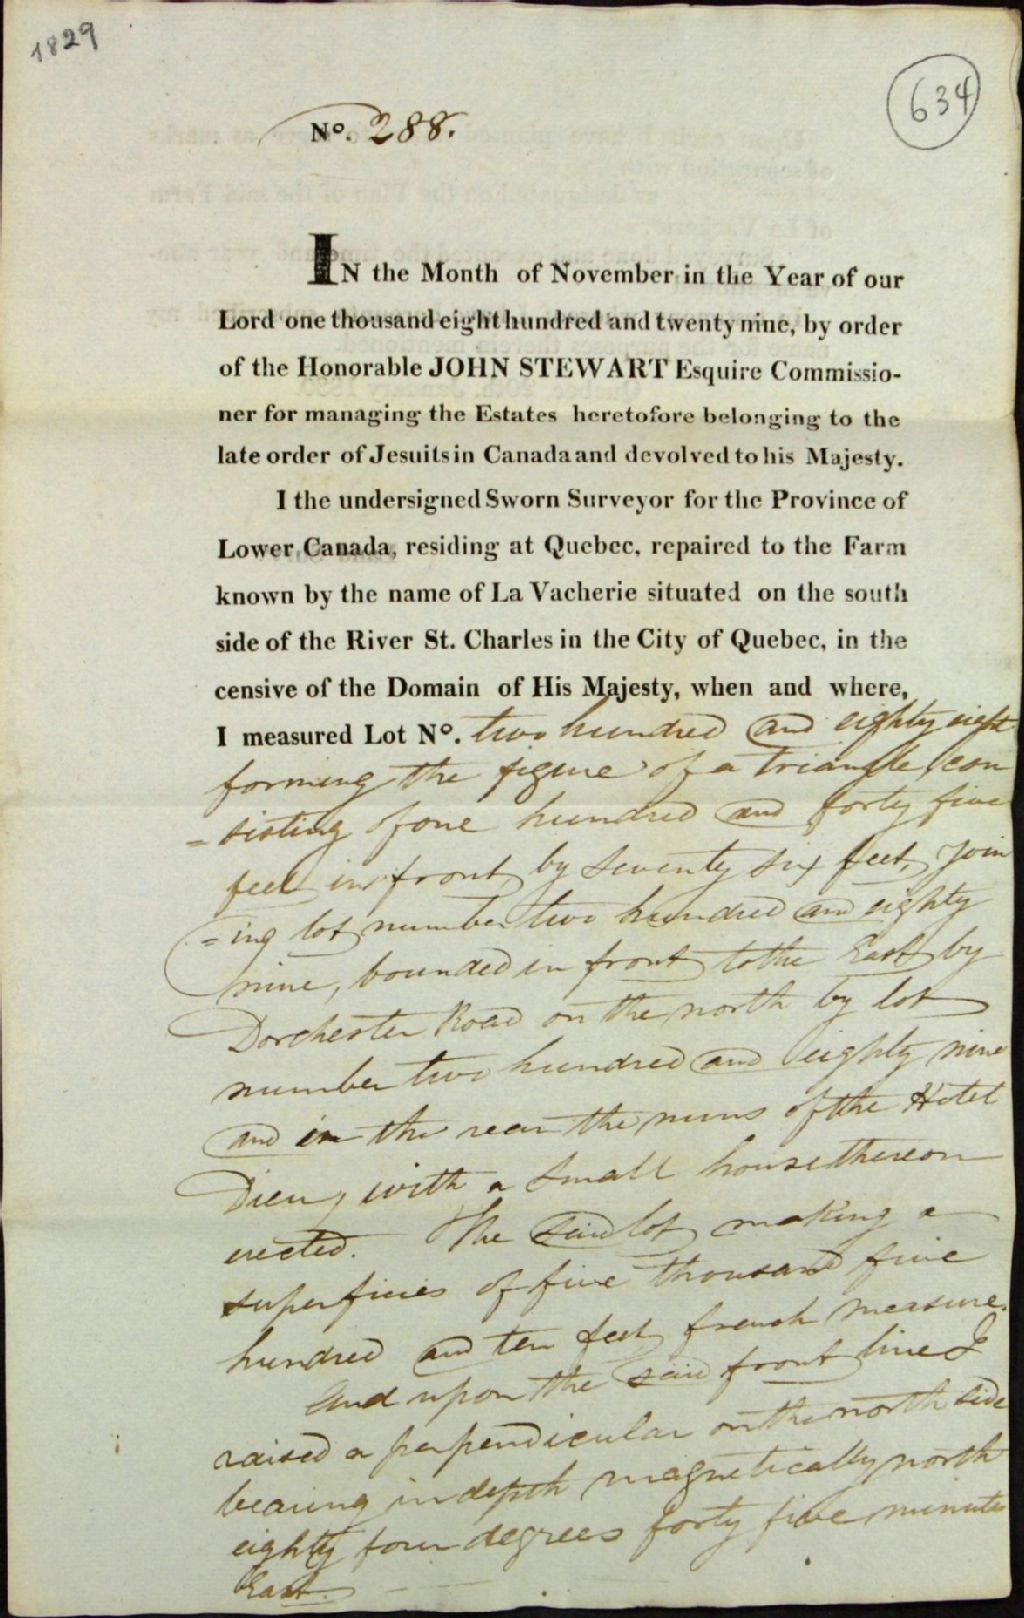 1829
634
No. 288.
IN the Month of November in the Year of our
Lord one thousand eight hundred and twenty nine, by order
of the Honorable JOHN STEWART Esquire Commissio-
ner for managing the Estates heretofore belonging to the
late order of Jesuits in Canada and devolved to his Majesty.
I the undersigned Sworn Surveyor for the Province of
Lower Canada, residing at Quebec, repaired to the Farm
known by the name of La Vacherie situated on the south
side of the River St. Charles in the City of Quebec, in the
censive of the Domain of His Majesty, when and where,
I measured Lot No. two hundred and eighty eight
forming the figure of a triangle, con
=sisting of one hundred and forty five
feet in front by seventy six feet, join
=ing lot number two hundred and eighty
nine, bounded in front to the East by
Dorchester Road on the north by lot
number two hundred and eighty nine
and in the rear the nuns of the Hotel
Dieu, with a small house thereon
erected. The said lot making a
superficies of five thousand five
hundred and ten feet french measure.
And upon the said front line I
raised a perpendicular on the north side
bearing in depth magnetically north
eighty four degrees forty five minutes
East.